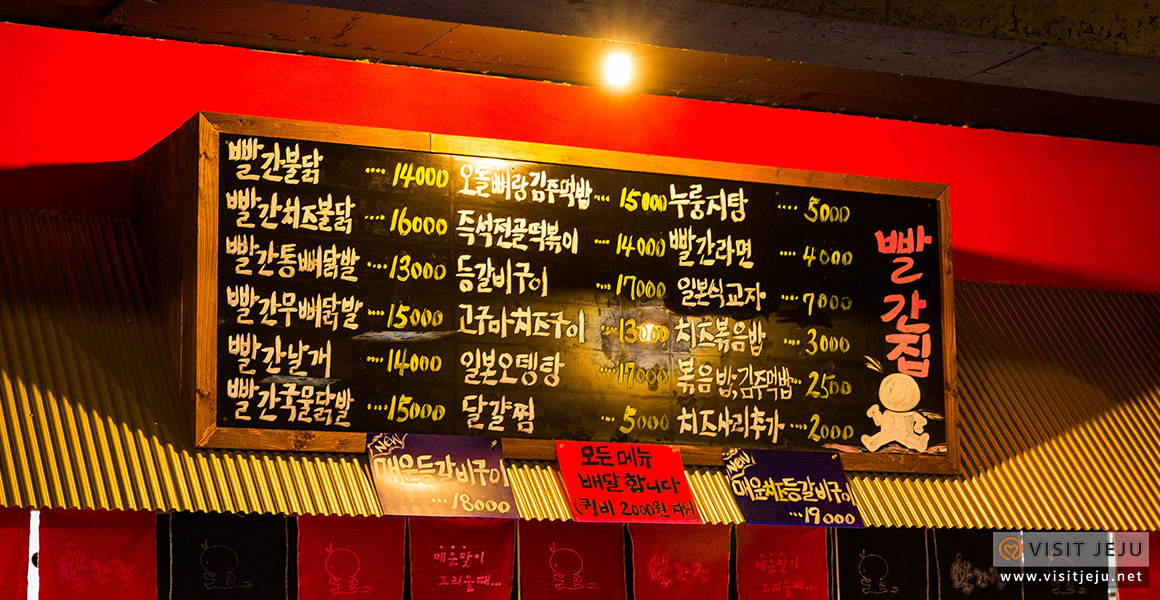 빨간불닭 .... 14000
빨간치즈불닭 .... 16000
빨간통뼈닭발 .... 13000
빨간무뼈닭발 .... 15000
빨간날개 .... 14000
빨간국물닭발 .... 15000
오돌뼈랑김주먹밥 ... 15000
즉석전골떡볶이 .... 14000
등갈비구이 .... 17000
고구마치즈구이 .... 13000
일본오뎅탕 .... 17000
달걀찜 .... 5000
누룽지탕 .... 5000
빨간라면 .... 4000
일본식교자 .... 7000
치즈볶음밥 .... 3000
볶음밥,김주먹밥 ... 2500
치즈사리추가 .... 2000
빨간집
NEW
매운등갈비구이
... 18000
모든 메뉴
배달 합니다
(퀵비 2000원
NEW
매운치즈등갈비구이
... 19000
빨간집
매운맛이
그리울때...
빨간집
매운맛이
그리울때...
빨간
VISIT JEJU
www.visitjeju.net